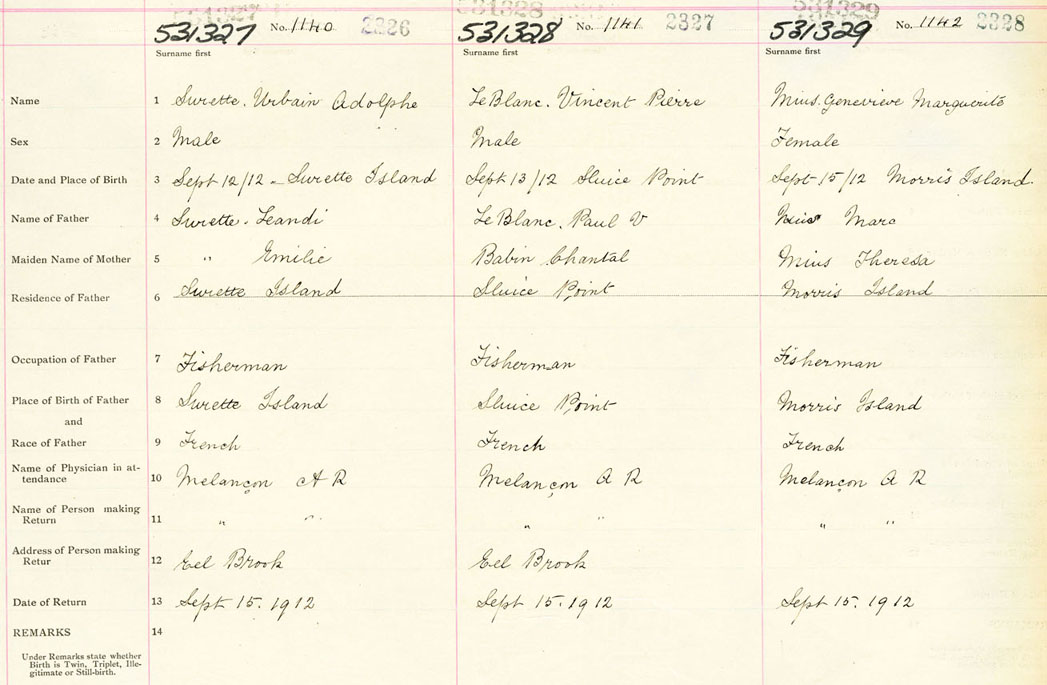 531327 531328 531329
531327 No. 1140 2326 531328 No. 1141 2327 531329 No. 1142 2328
Surname first Surname first Surname first
Name 1 Surette. Urbain Adolphe LeBlanc. Vincent Pierre Mius. Genevieve Marguerite
Sex 2 Male Male Female
Date and Place of Birth 3 Sept 12/12 - Surette Island Sept 13/12 Sluice Point Sept 15/12 Morris Island.
Name of Father 4 Surette. Leandi LeBlanc. Paul V Mius Marc
Maiden Name of Mother 5 " Emilie Babin Chantal Mius Theresa
Residence of Father 6 Surette Island Sluice Point Morris Island
Occupation of Father 7 Fisherman Fisherman Fisherman
Place of Birth of Father 8 Surette Island Sluice Point Morris Island
and
Race of Father 9 French French French
Name of Physician in at-
tendance 10 Melançon A R Melançon A R Melançon A R
Name of Person making
Return 11 " " " " " "
Address of Person making
Retur 12 Eel Brook Eel Brook
Date of Return 13 Sept 15. 1912 Sept 15. 1912 Sept 15. 1912
REMARKS 14
Under Remarks state whether
Birth is Twin, Triplet, Ille-
gitimate or Still-birth.